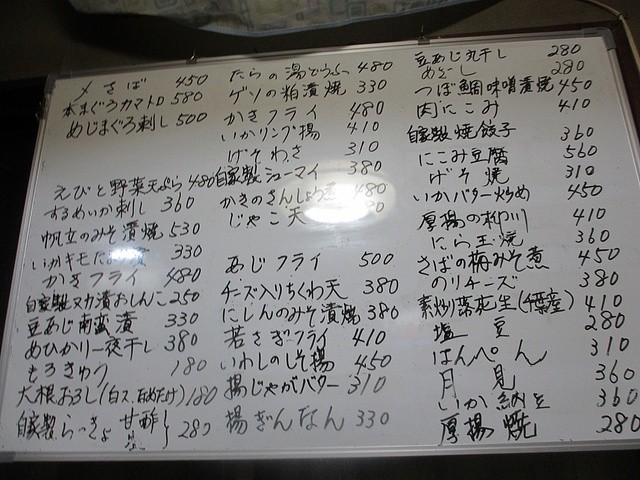 〆さば 450
本まぐろカマトロ 580
めじまぐろ刺し 500
えびと野菜天ぷら 480
するめいか刺し 360
帆立のみそ漬焼 530
いかキモ 330
かきフライ 480
自家製ヌカ漬おしんこ 250
豆あじ南蛮漬 330
めひかり一夜干し 380
もろきゅう 180
大根おろし(白ス、なめたけ) 180
自家製らっきょ 甘酢 280
たらの湯どうふ 480
ゲソの粕漬焼 330
かきフライ 480
いかリング揚 410
げそわさ 310
自家製シューマイ 380
かきのさんしょう煮 480
じゃこ天
あじフライ 500
チーズ入りちくわ天 380
にしんのみそ漬焼 380
若さぎフライ 410
いわしのしそ揚 450
揚じゃがバター 310
揚ぎんなん 330
豆あじ丸干し 280
めざし 280
つぼ鯛味噌漬焼 450
肉にこみ 410
自家製焼餃子 360
にこみ豆腐 560
げそ焼 310
いかバター炒め 450
厚揚の柳川 410
にら玉焼 360
さばの梅みそ煮 450
のりチーズ 380
素炒り落花生(千葉産) 410
塩豆 280
はんぺん 310
月見 360
いか納豆 360
厚揚焼 280